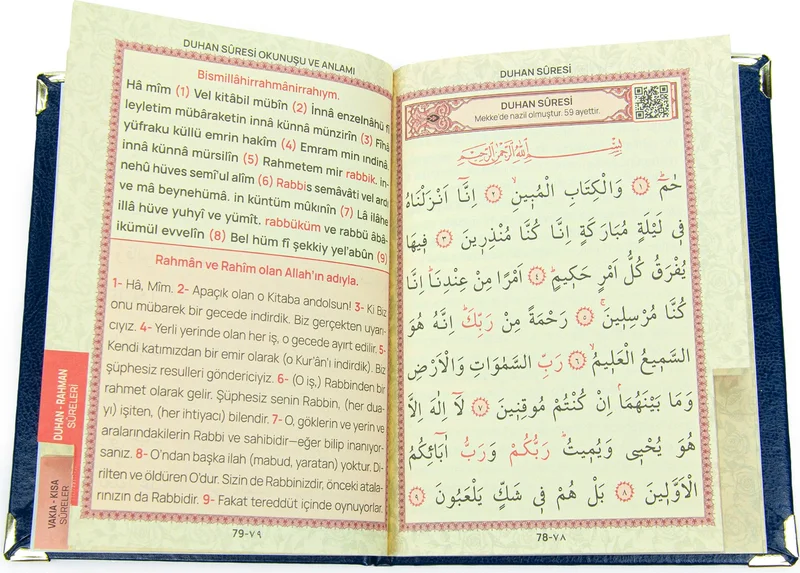 DUHAN SÛRESİ OKUNUŞU VE ANLAMI
Bismillâhirrahmânirrahıym.
Hâ mîm (1) Vel kitâbil mübîn (2) İnnâ enzelnâhü fî
leyletim mübâraketin innâ künnâ münzirîn (3) Fîhâ
yüfraku küllü emrin hakîm (4) Emram min ındinâ
innâ künnâ mürsilîn (5) Rahmetem mir rabbik. in-
nehû hüves semî'ul alîm (6) Rabbis semâvâti vel ard
ve mâ beynehümâ. in küntüm mûkınîn (7) Lâ ilâhe
illâ hüve yuhyî ve yümît. rabbüküm ve rabbü âbâ-
ikümül evvelîn (8) Bel hüm fî şekkiy yel'abûn (9)
Rahmân ve Rahîm olan Allah'ın adıyla.
1- Hâ, Mîm. 2- Apaçık olan o Kitaba andolsun! 3- Ki Biz
onu mübarek bir gecede indirdik. Biz gerçekten uyarı-
cıyız. 4- Yerli yerinde olan her iş, o gecede ayırt edilir. 5-
Kendi katımızdan bir emir olarak (o Kur'ân'ı indirdik). Biz
şüphesiz resulleri göndericiyiz. 6- (O iş,) Rabbinden bir
rahmet olarak gelir. Şüphesiz senin Rabbin, (her dua-
yı) işiten, (her ihtiyacı) bilendir. 7- O, göklerin ve yerin ve
aralarındakilerin Rabbi ve sahibidir—eğer bilip inanıyor-
sanız. 8- O'ndan başka ilah (mabud, yaratan) yoktur. Di-
rilten ve öldüren O'dur. Sizin de Rabbinizdir, önceki atala-
rınızın da Rabbidir. 9- Fakat tereddüt içinde oynuyorlar.
79-٧٩
DUHAN - RAHMAN
SÛRELERİ
VAKIA - KISA
SÛRELER
DUHAN SÛRESİ
DUHAN SÛRESİ
Mekke'de nazil olmuştur. 59 ayettir.
بِسْمِ اللّٰهِ الرَّحْمٰنِ الرَّحٖيمِ
حٰمٓ ﴿١﴾ وَالْكِتَابِ الْمُبٖينِ ﴿٢﴾ اِنَّٓا اَنْزَلْنَاهُ
فٖى لَيْلَةٍ مُبَارَكَةٍ اِنَّا كُنَّا مُنْذِرٖينَ ﴿٣﴾ فٖيهَا
يُفْرَقُ كُلُّ اَمْرٍ حَكٖيمٍ ﴿٤﴾ اَمْرًا مِنْ عِنْدِنَا اِنَّا
كُنَّا مُرْسِلٖينَ ﴿٥﴾ رَحْمَةً مِنْ رَبِّكَ اِنَّهُ هُوَ
السَّمٖيعُ الْعَلٖيمُ ﴿٦﴾ رَبِّ السَّمٰوَاتِ وَالْاَرْضِ
وَمَا بَيْنَهُمَا اِنْ كُنْتُمْ مُوقِنٖينَ ﴿٧﴾ لَٓا اِلٰهَ اِلَّا
هُوَ يُحْيٖى وَيُمٖيتُ رَبُّكُمْ وَرَبُّ اٰبَٓائِكُمُ
الْاَوَّلٖينَ ﴿٨﴾ بَلْ هُمْ فٖى شَكٍّ يَلْعَبُونَ ﴿٩﴾
78-٧٨